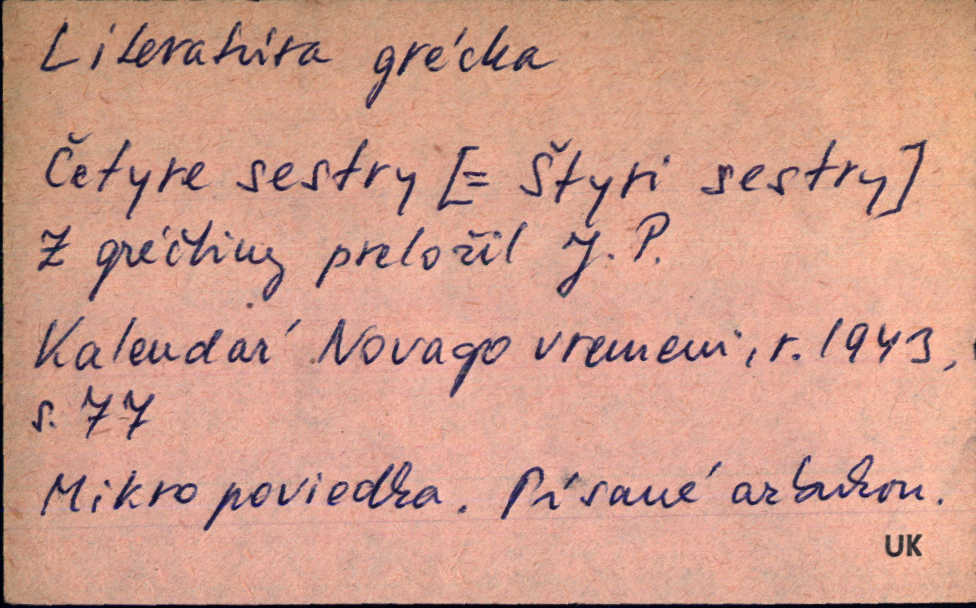 Literatúra grécka
Četyre sestry [= Štyri sestry]
Z gréčtiny preložil J. P.
Kalendař Novago vremeni, r. 1943,
s. 77
Mikro poviedka. Písané azbukou.
UK